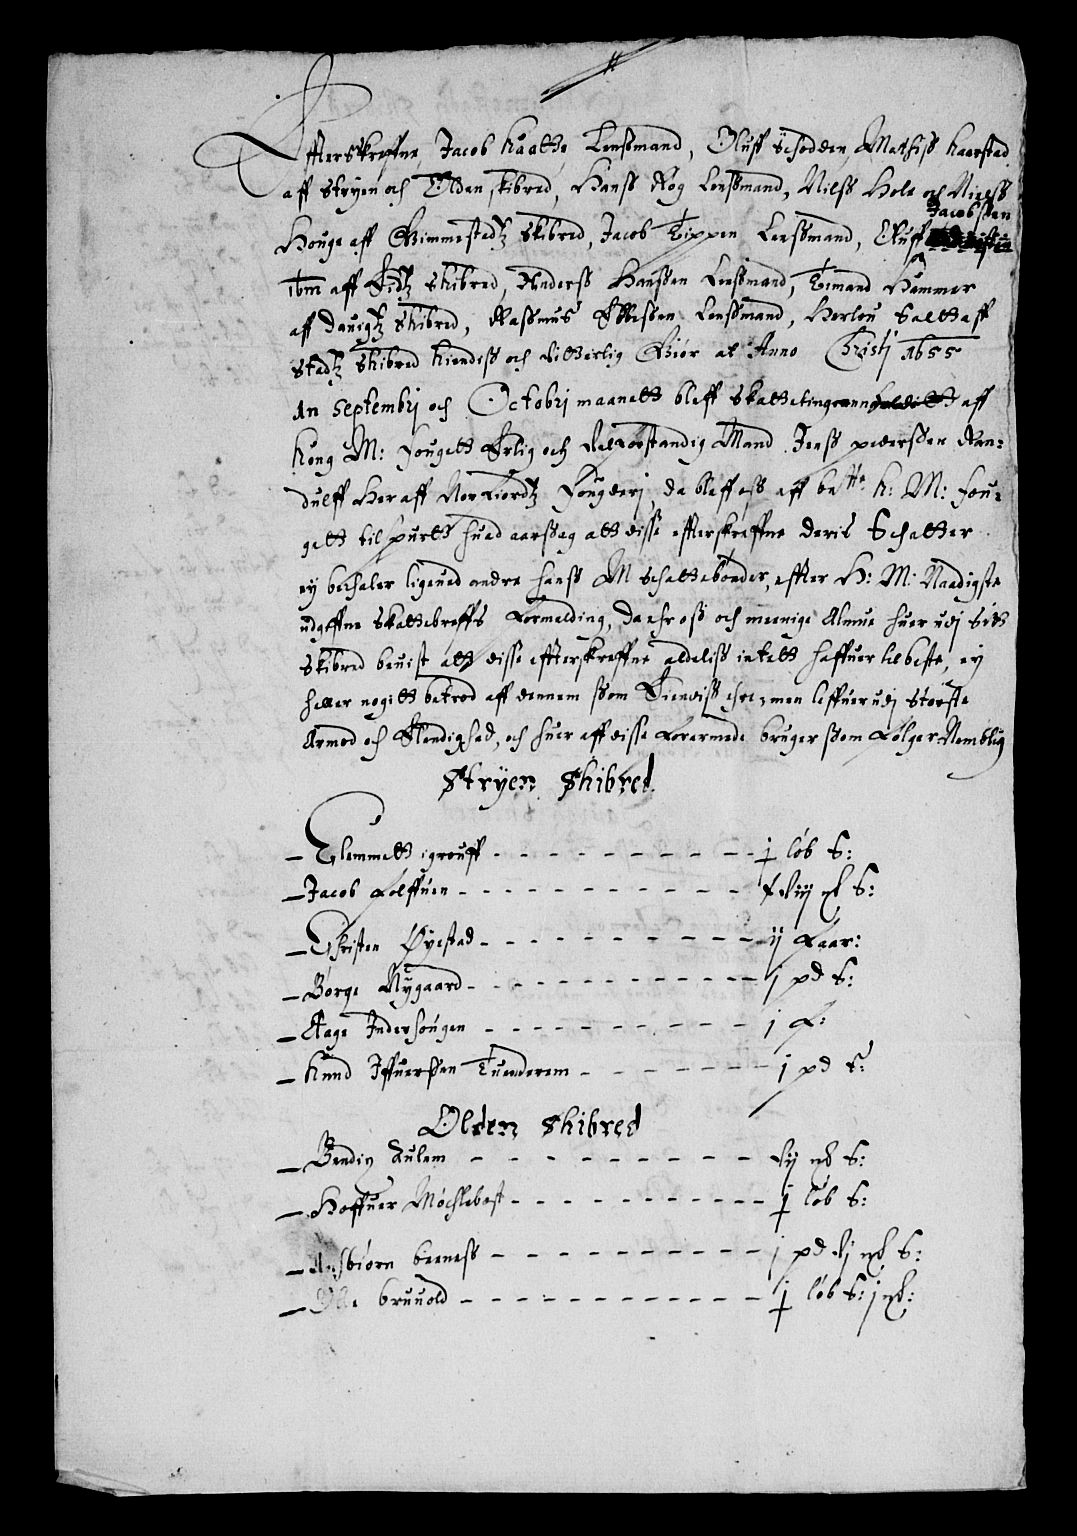 Effterskreffne, Jacob Kaatte, Lenssmand, Oluff Schodden, Mathiss Haarstad
aff Stryen och Olden skibred, Hanss Rog Lenssmand, Nilss Hole och Nielss
Houge aff Gimmestadtz skibred, Jacob Tippen Lenssmand, Jacobssen
aff skibred, Anderss Hanssen Lenssmand, Timand Hammer
aff Dauigtz skibred, Rassmus Ebbessen Lenssmand, Herlou Saltt aff
Stadtz skibred kiendiss och vitterlig Giør at Anno Christj 1655
An Septembrj och Octobrj maanett bleff skattetingenn holditt aff
Kong M: Fougett Erlig och Velforstandig Mand Jenss pederssen Ran-
dulff Her aff Norfiordtz Fougderj, da bleff oss aff be:te K: M: Fou-
gett tilspurtt huad aarssag att disse effterskreffne deris Schatter
ey betaler ligeued andre hanss M schattebønder, effter H: M: Naadigste
udgeffne skattebreffs formelding, da ehr oss och meenige Almue huer udj sitt
skibred beuist att disse effterskreffne aldeliss intett haffuer til beste, ey
heller nogitt betrod aff dennem ssom ere, men leffuer udj største
Armod och Elendighed, och huer aff disse forarmede bruger ssom følger Nemblig
Stryen skibred
Clemmett igrouff - - - - - - - - - - j løb S:
Jacob Lolffuen - - - - - - - - - - S:
Christen Øyestad - - - - - - - - - - ij Faar:
Børge Nygaard - - - - - - - - - - j pd S:
Aage Inderhougen - - - - - - - - j F:
Knud Iffuerssen Tuenderem - - - - - - - j pd S:
Olden skibred
Bendix Aulem - - - - - - - - - S:
Hoffuer Møchlebost - - - - - - - - - - j løb S:
Assbiørn beeness - - - - - - - - - - j pd S:
Olle bruuold - - - - - - - - - - - - j løb S: j